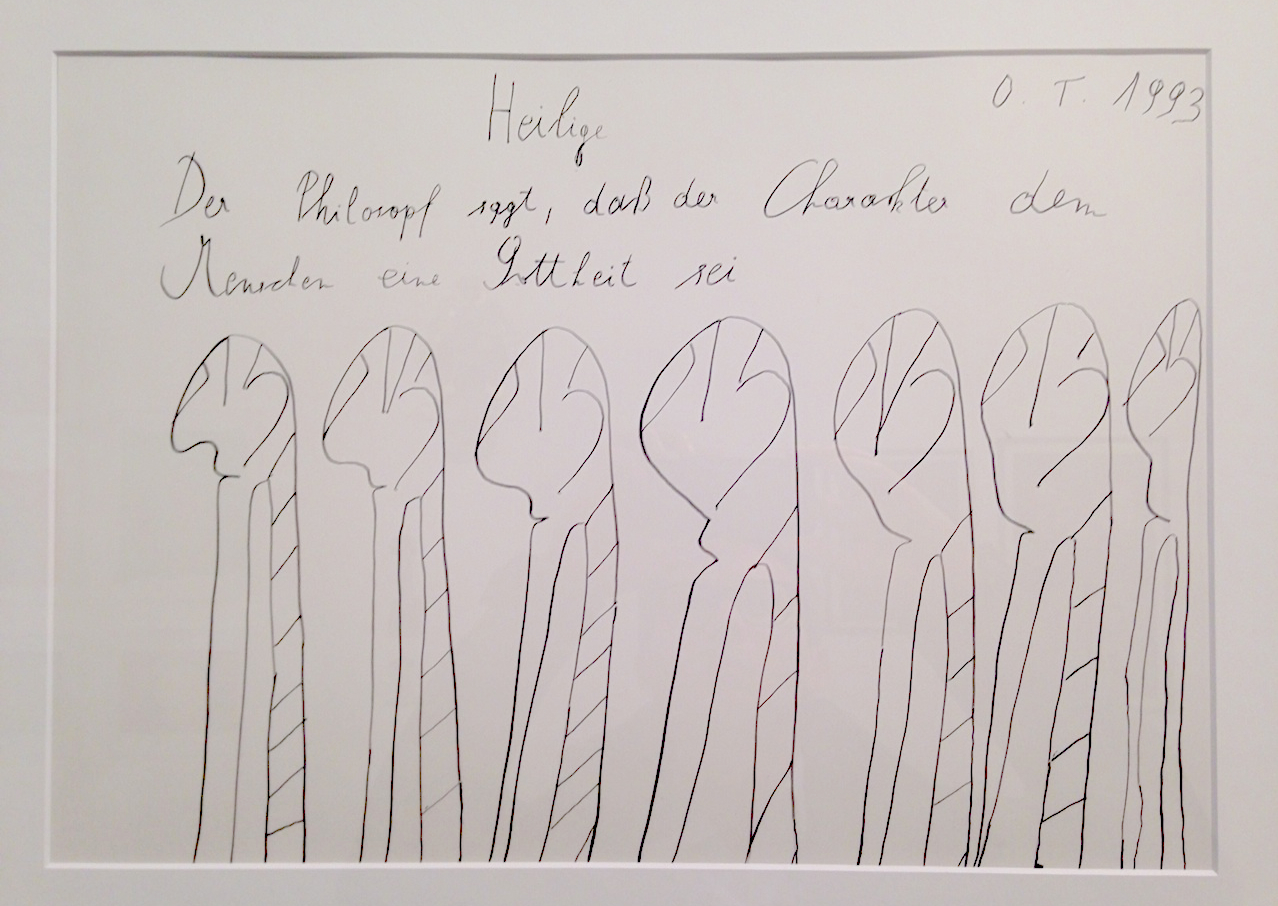 Heilige
O. T. 1993
Der Philosopf sagt, daß der Charakter dem
Menschen eine Gottheit sei